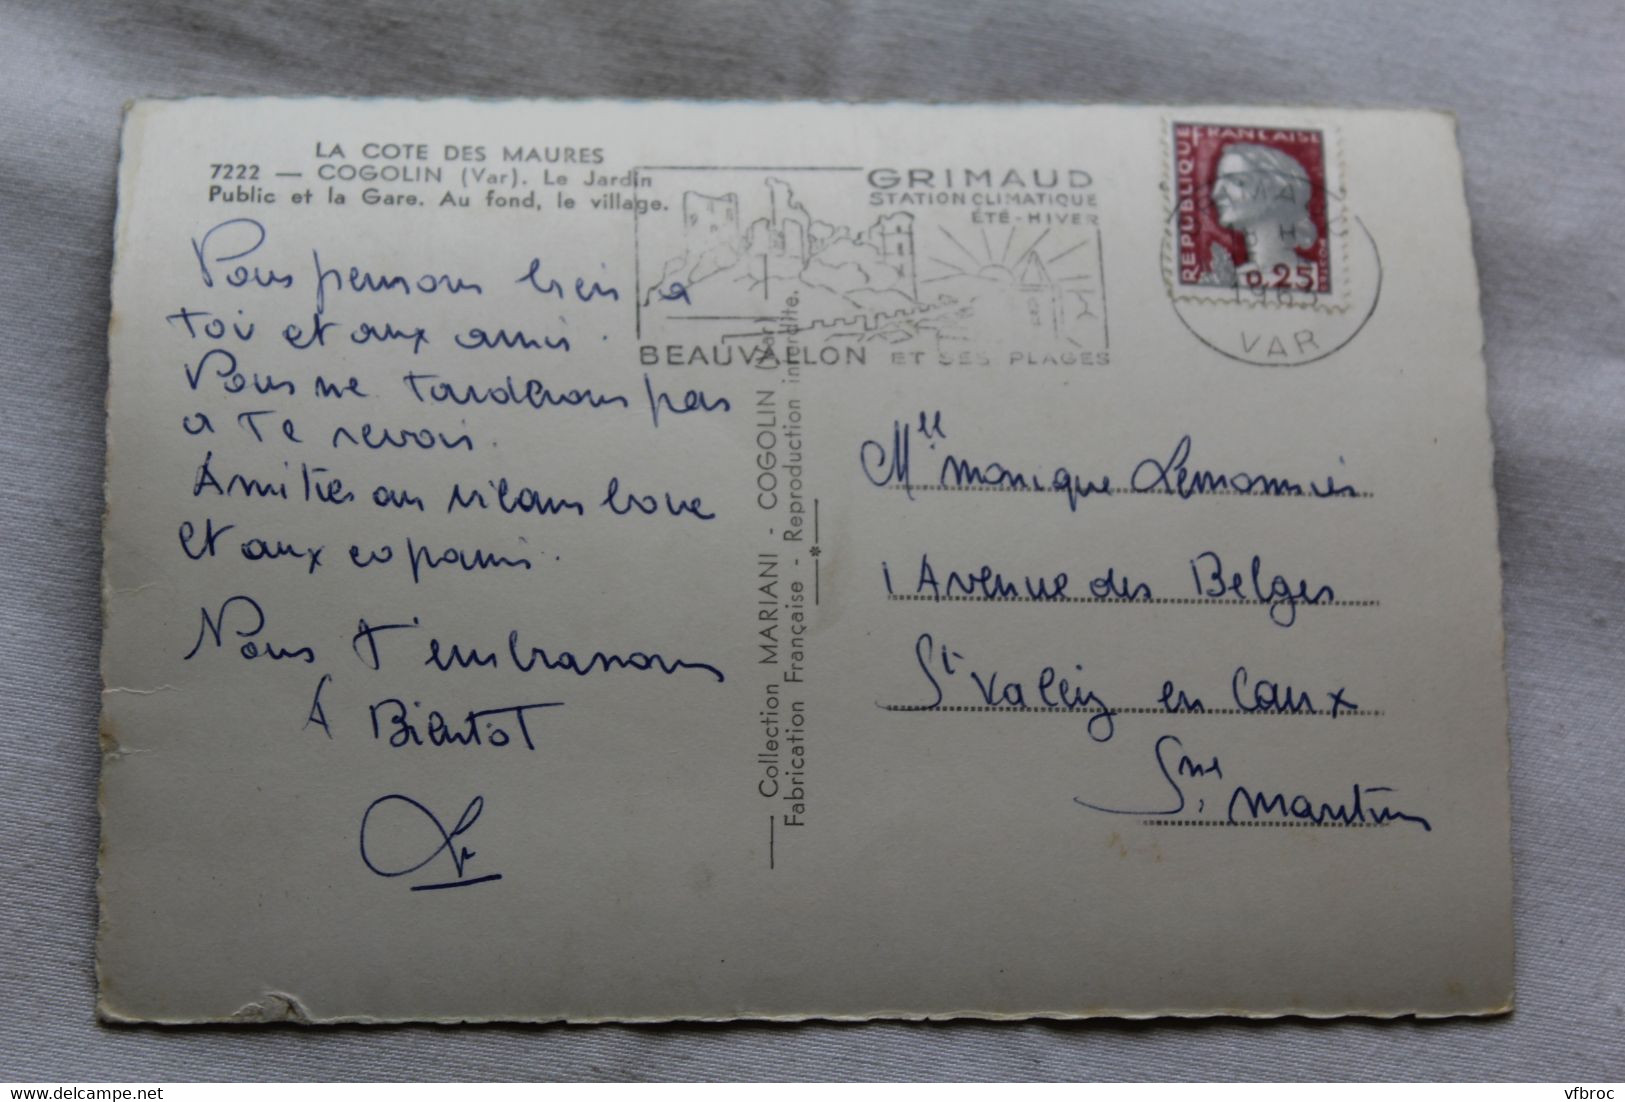 LA COTE DES MAURES
7222 — COGOLIN (Var). Le Jardin
Public et la Gare. Au fond, le village.
Nous pensons bien a
toi et aux amis.
Nous ne tarderons pas
a te revoir.
Amitiés au
et aux copains.
Nous t'embrassons
A Bientot
GRIMAUD
STATION CLIMATIQUE
ÉTÉ - HIVER
BEAUVALLON ET SES PLAGES
REPUBLIQUE FRANCAISE
0,25
DECARIS
VAR
Collection MARIANI - COGOLIN (Var)
Fabrication Française - Reproduction interdite.
Mlle monique Lemonnier
1 Avenue des Belges
St Valéry en Caux
Sne maritime
https://www.delcampe.net
vfbroc